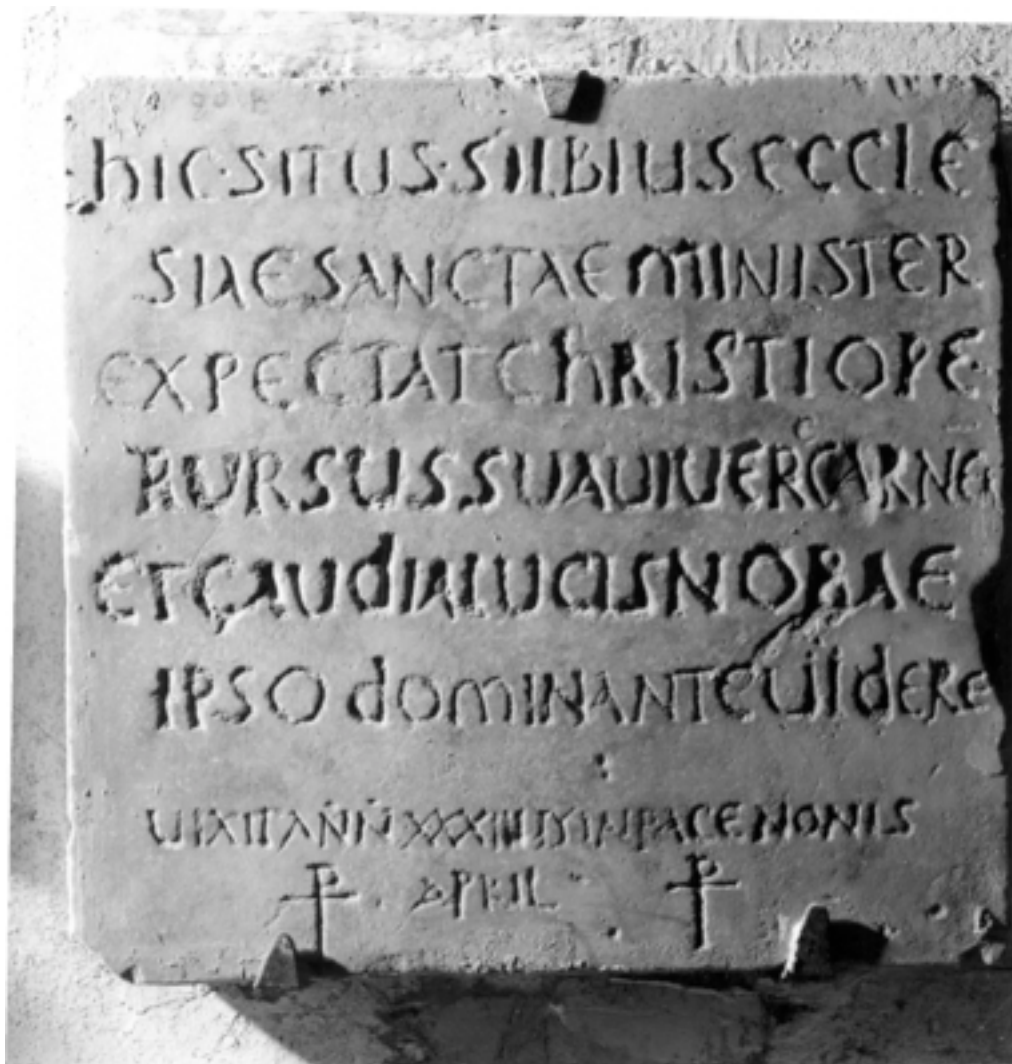 hIC·SITUS·SILBIUS ECCLE
SIAE SANCTAE MINISTER
EXPECTAT ChRISTI OPE
RURSUS SUA VIVER CARNE
ET GAUdIA LUCIS NOBAE
IPSO dOMINANTE UIdERE
UIXIT ANN XXXIII IN PACE NONIS
APRIL